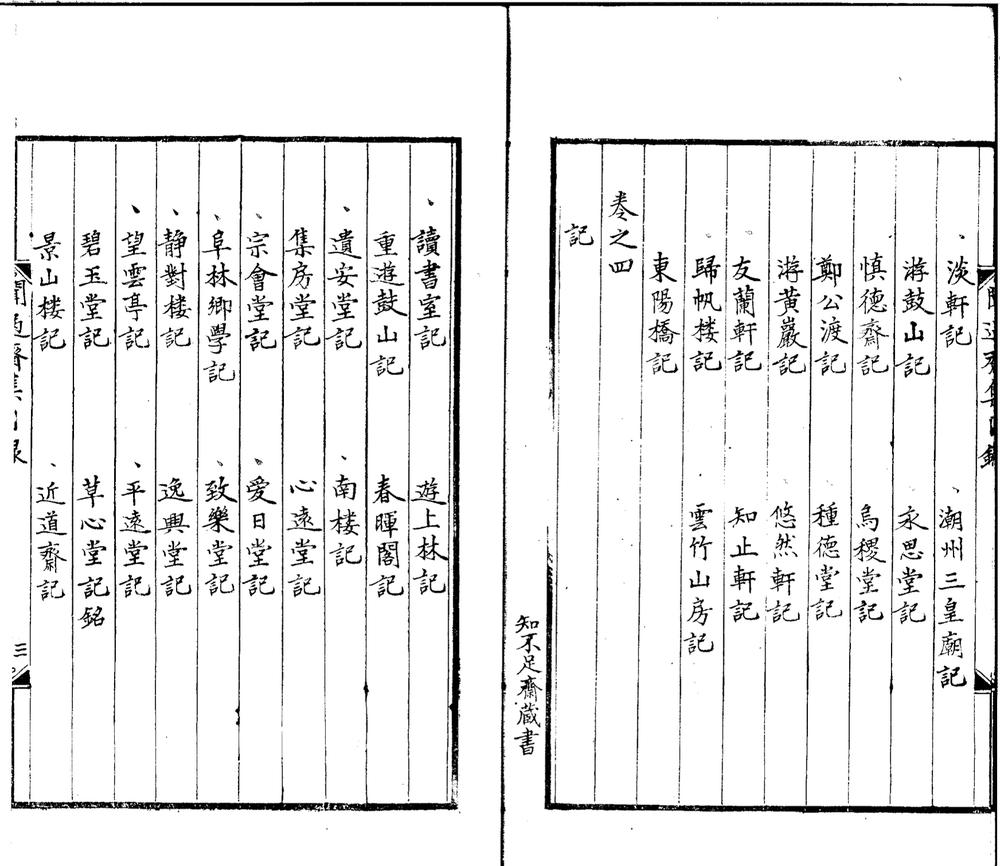 淡軒記　潮州三皇廟記
游鼓山記　永思堂記
慎德齋記　烏稷堂記
鄭公渡記　種德堂記
游黃巖記　悠然軒記
友蘭軒記　知止軒記
歸帆楼記　雲竹山房記
東陽橋記
卷之四
記
知不足齋蔵書
讀書室記　遊上林記
重遊鼓山記　春暉閣記
遺安堂記　南楼記
集房堂記　心遠堂記
宗會堂記　愛日堂記
阜林鄉學記　致樂堂記
静對楼記　逸興堂記
望雲亭記　平遠堂記
碧玉堂記　草心堂記銘
景山楼記　近道齋記
聞過齋集目録
三